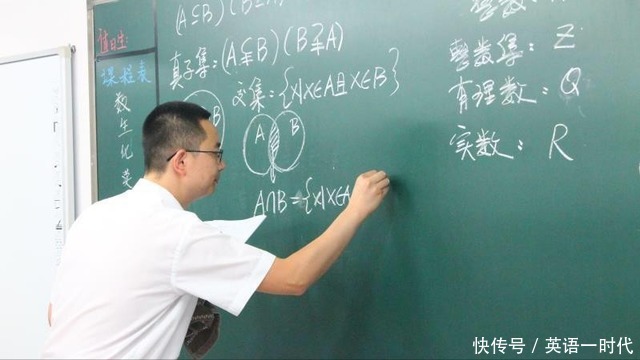 值日生
课程表
数
生
化
英
(A⊆B)
真子集:(A⫋B)(B⫌A)
交集:{x|x∈A且x∈B}
B
A B
A∩B={x|x∈A
整数集: Z
有理数: Q
实数: R
快传号 / 英语一时代